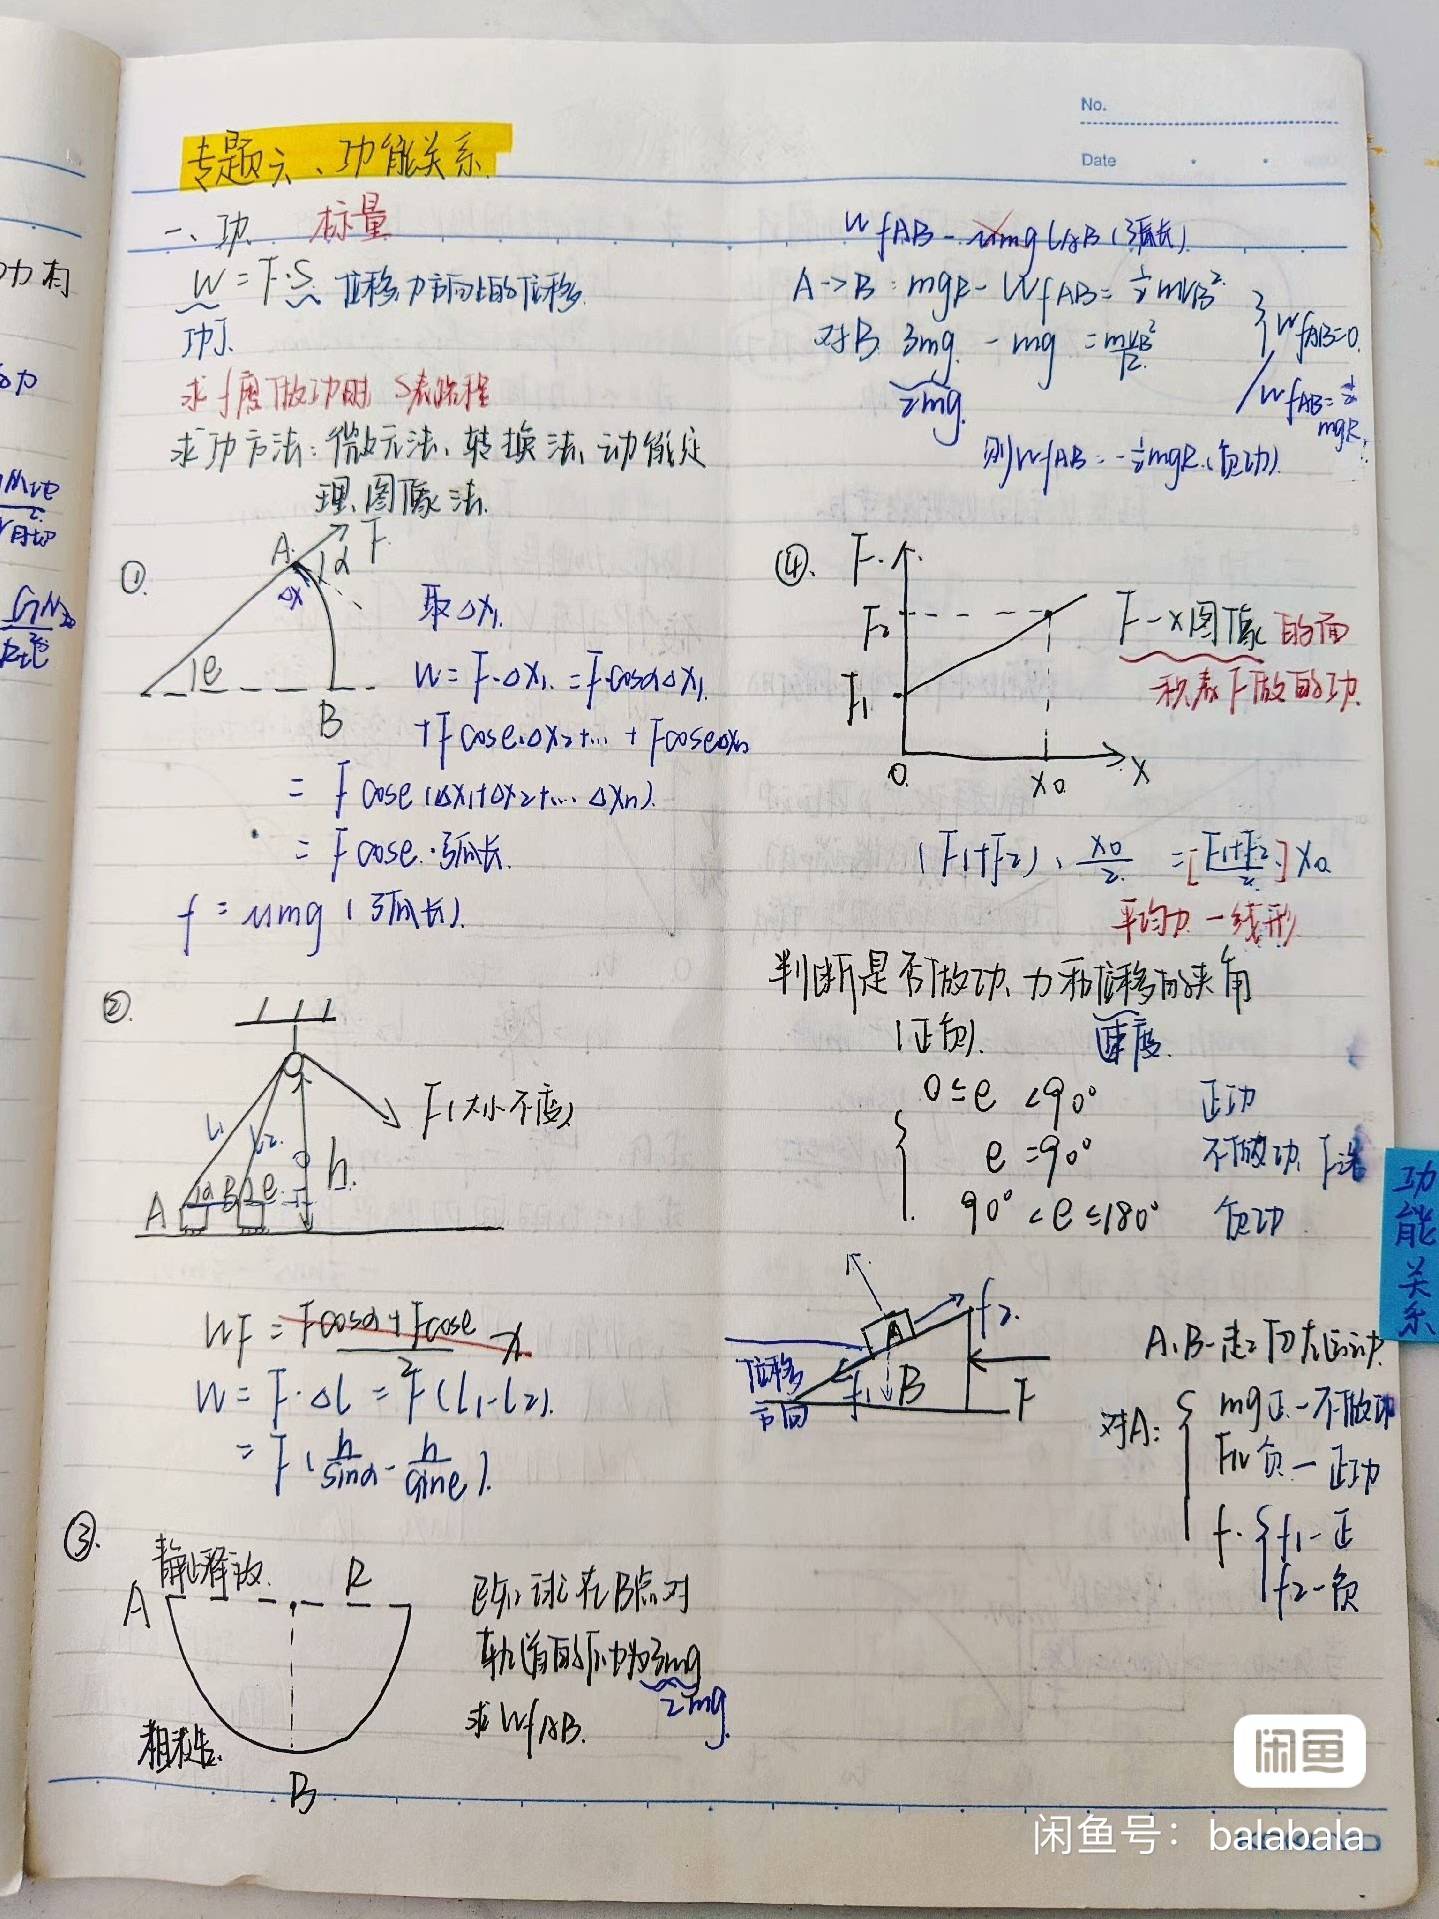 No.
Date
专题六、功能关系.
一、功. 标量
W = F·S 位移,力方向上的位移.
功J.
求f摩做功时 S表路程
求功方法:微元法、转换法、动能定
理、图像法.
①.
A
F.
α
Δx
θ
B
取Δx₁.
W = F·Δx₁. = Fcosα Δx₁.
+ F cosθ·Δx₂+... + Fcosθ Δxₙ
= F cosθ (Δx₁+Δx₂+... Δxₙ).
= F cosθ · 弧长.
f = μmg (弧长).
②.
F(大小不变)
L₁
L₂
h.
A
α
B
θ
WF = Fcosα+Fcosθ / 2 x
W = F·Δl = F(l₁-l₂).
= F( h/sinα - h/sinθ ).
③.
静止释放.
A
R
粗糙.
B
已知球在B点对
轨道的压力为3mg
2mg.
求WfAB.
WfAB = μmg LAB (弧长).
A->B: mgR - WfAB = ½mVB²
对B. 3mg. - mg = mVB²/R.
2mg.
WfAB=0.
WfAB=½
mgR.
则WfAB = -½mgR.(负功).
④.
F.
F₂
F₁
0
x₀
x
F-x图像的面
积表F做的功.
(F₁+F₂)· x₀/2 = [F₁+F₂/2.] x₀
平均力 — 线形
判断是否做功、力和位移的夹角
(正负).
速度.
0≤θ <90° 正功
θ =90° 不做功
90° <θ ≤180° 负功
位移
方向
A
f₂.
f₁
B
F
A、B一起向左运动.
对A:
mg正-不做功
FN负-正功
f.
f₁-正
f₂-负
功能关系
闲鱼
闲鱼号：balabala